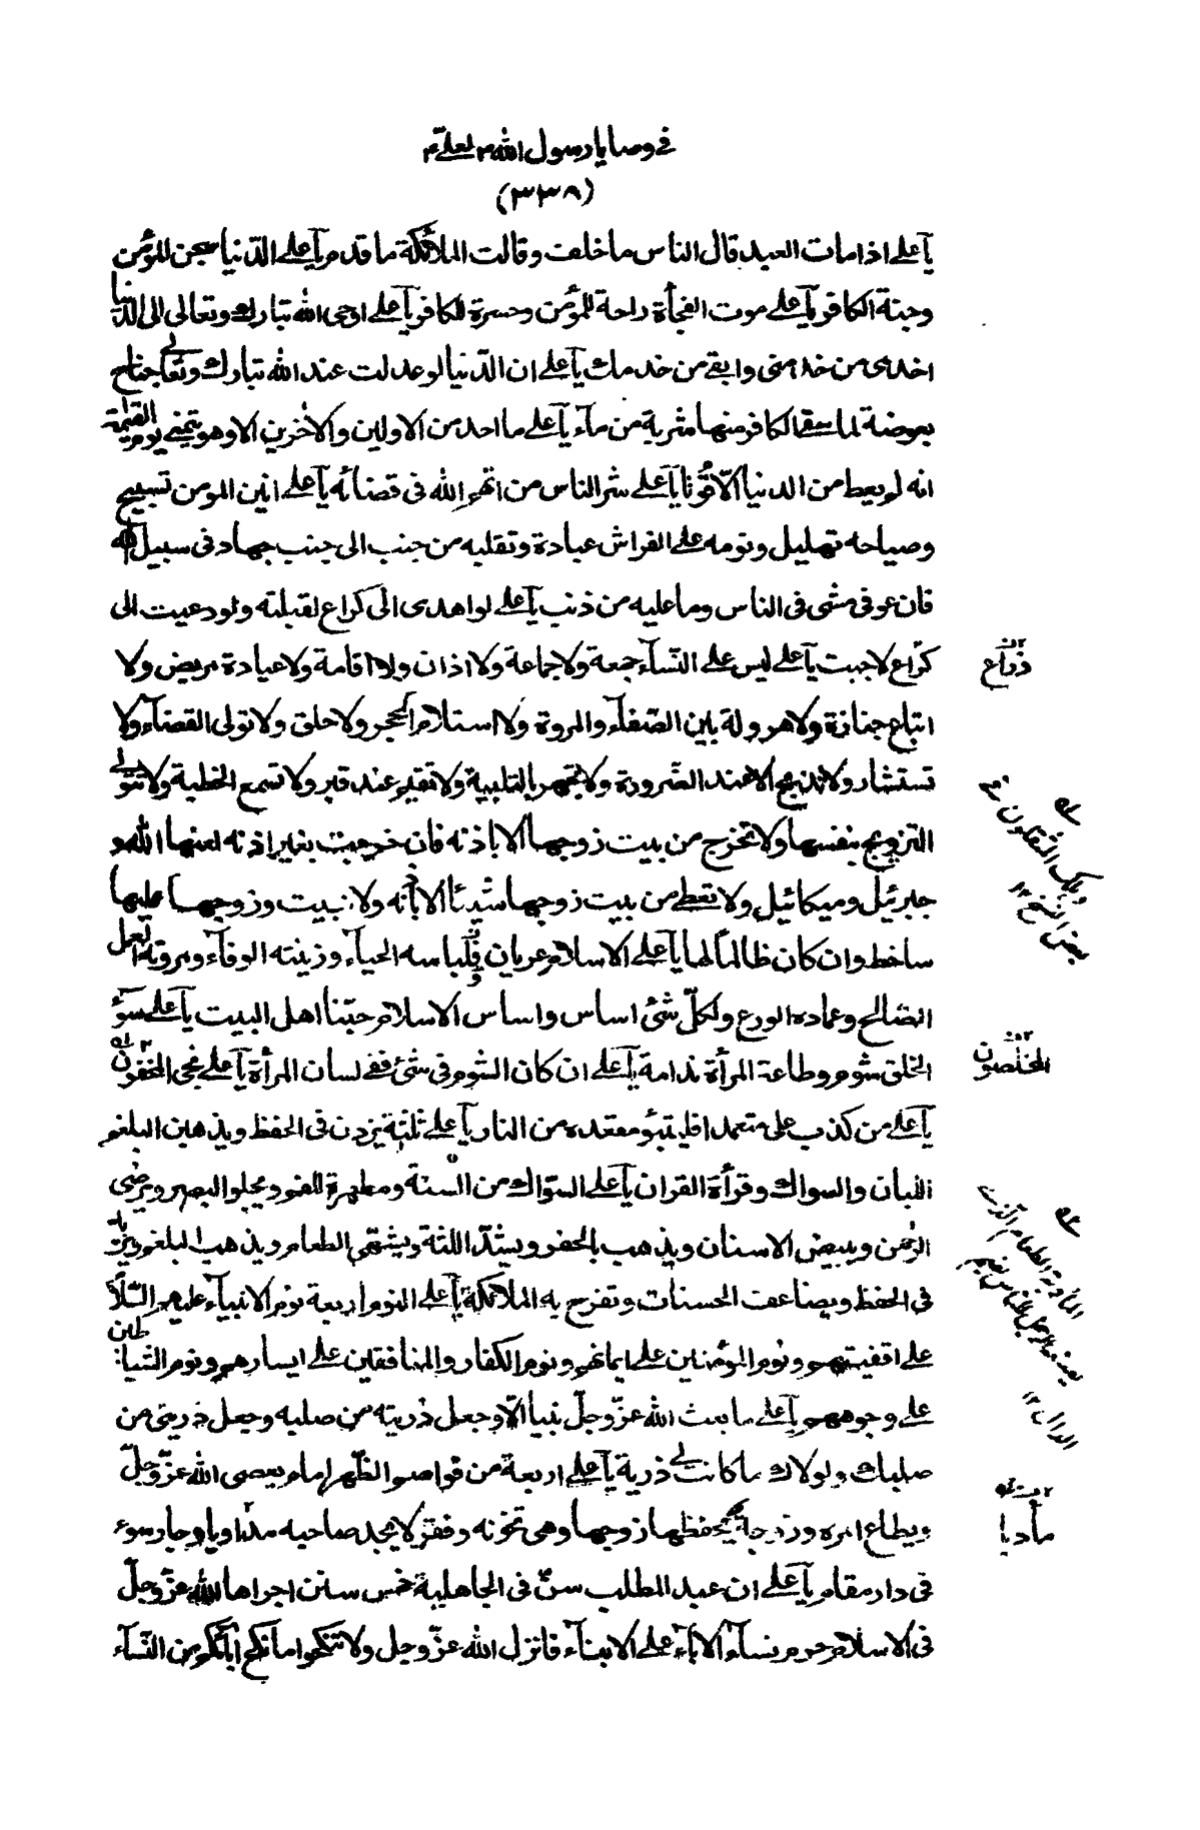 في وصايا رسول الله ص لعلي ع
(٣٣٨)
يا علي اذا مات العبد قال الناس ما خلف وقالت الملائكة ما قدم يا علي الدّنيا سجن للمؤمن
وجنة الكافر يا علي موت الفجأة راحة للمؤمن وحسرة للكافر يا علي اوحى الله تبارك وتعالى الى الدّنيا
اخدمى من خدمنى واتعبى من خدمك يا علي ان الدّنيا لو عدلت عند الله تبارك وتعالى جناح
بعوضة لما سقى الكافر منها شربة من ماء يا علي ما احد من الاولين والاخرين الا وهو يتمنى يوم القيمة
انه لم يعط من الدنيا الّا قوتا يا علي شر الناس من اتهم الله فى قضائه يا علي انين المومن تسبيح
وصياحه تهليل ونومه على الفراش عبادة وتقلبه من جنب الى جنب جهاد فى سبيل الله
فان عوفى مشى فى الناس وما عليه من ذنب يا علي لو اهدى الىّ كراع لقبلته ولو دعيت الى
كراع لاجبت يا علي ليس على النّساء جمعة ولا جماعة ولا اذان ولا اقامة ولا عيادة مريض ولا
ذراع
اتباع جنازة ولا هرولة بين الصّفا والمروة ولا استلام الحجر ولا حلق ولا تولى القضاء ولا
تستشار ولا تذبح الا عند الضّرورة ولا تجهر بالتلبية ولا تقيم عند قبر ولا تسمع الخطبة ولا تتولى
التزويج بنفسها ولا تخرج من بيت زوجها الا باذنه فان خرجت بغير اذنه لعنها الله و
جبرئيل وميكائيل ولا تعطى من بيت زوجها شيئا الا باذنه ولا تبيت وزوجها عليها
ساخط وان كان ظالمًا لها يا علي الاسلام عريان ولباسه الحياء وزينته الوفاء ومروته العمل
الصّالح وعماده الورع ولكلّ شئ اساس واساس الاسلام حبّنا اهل البيت يا علي سوء
الخلق شوم وطاعة المرأة ندامة يا علي ان كان الشوم فى شئ ففى لسان المرأة يا علي نجى المخفون
المخلصون
يا علي من كذب على متعمدا فليتبوّء مقعده من النار يا علي ثلثة يزدن فى الحفظ ويذهبن البلغم
اللبان والسواك وقرأة القران يا علي السّواك من السّنة ومطهرة للفم ويجلو البصر ويرضى
الرحمن ويبيض الاسنان ويذهب بالحفر ويشدّ اللثة ويشهّى الطعام ويذهب البلغم ويزيد
فى الحفظ ويضاعف الحسنات وتفرح به الملائكة يا علي النوم اربعة نوم الانبياء عليهم السّلام
على اقفيتهم ونوم المؤمنين على ايمانهم ونوم الكفار والمنافقين على ايسارهم ونوم الشياطين
على وجوههم يا علي ما بعث الله عزّ وجلّ نبيا الّا وجعل ذريته من صلبه وجعل ذريتى من
صلبك ولولاك ما كانت لى ذرية يا علي اربعة من قواصم الظّهر امام يعصى الله عزّ وجلّ
ويطاع امره وزوجة يحفظها زوجها وهى تخونه وفقر لا يجد صاحبه مداويا وجار سوء
مأديا
فى دار مقام يا علي ان عبد المطلب سنّ فى الجاهلية خمس سنن اجراها الله عزّ وجلّ
فى الاسلام حرم نساء الاباء على الابناء فانزل الله عزّ وجل ولا تنكحوا ما نكح ابائكم من النّساء